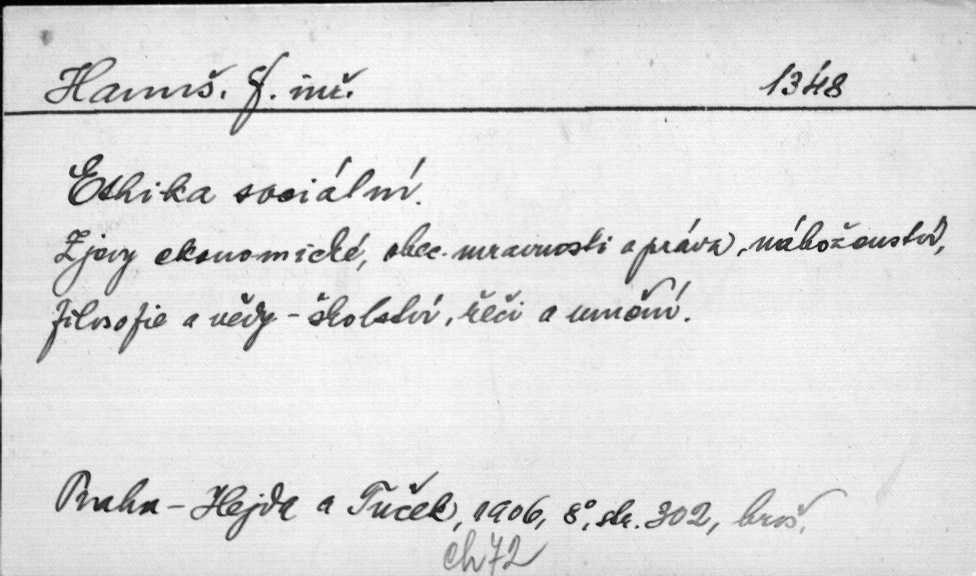 Hanuš. J. inž. 1348
Ethika sociální.
Zjevy ekonomické, obec. mravnosti a práva, náboženství,
filosofie a vědy - školství, řeči a umění.
Praha - Hejda a Tuček, 1906, 8°, str. 302, brož.
ch72